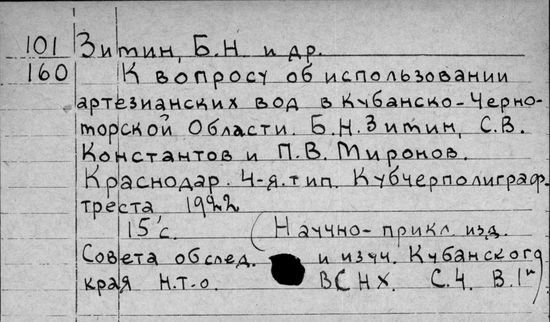 101 Зитин, Б.Н. и др.
160 К вопросу об использовании
артезианских вод в Кубанско-Черно-
торской Области. Б.Н. Зитин, С.В.
Константов и П.В. Миронов.
Краснодар. 4-я. тип. Кубчерполиграф.
треста 1922
15 с. (Научно-прикл. изд.
Совета обслед. и изуч. Кубанского
края Н.Т.О. ВСНХ. С.Ч. В.1й)